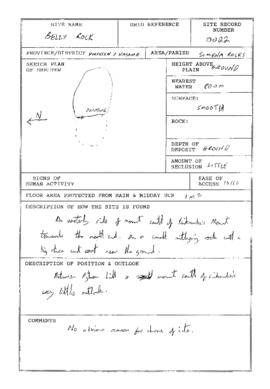 SITE NAME
GRID REFERENCE
SITE RECORD NUMBER
BELLY ROCK
0022
PROVINCE/DISTRICT
AREA/PARISH
ROCKS
SKETCH PLAN OF SHELTER
HEIGHT ABOVE PLAIN GROUND
N
NEAREST WATER 800m
SURFACE:
SMOOTH
ROCK:
DEPTH OF DEPOSIT GROUND
AMOUNT OF SECLUSION LITTLE
SIGNS OF HUMAN ACTIVITY
EASE OF ACCESS
FLOOR AREA PROTECTED FROM RAIN & MIDDAY SUN
DESCRIPTION OF HOW THE SITE IS FOUND
On side of mount south of Mount
towards the north end. On a small outlying rock with a
near the ground.
DESCRIPTION OF POSITION & OUTLOOK
Between hill & mount south of
very little outlook.
COMMENTS
No obvious reason for choice of site.